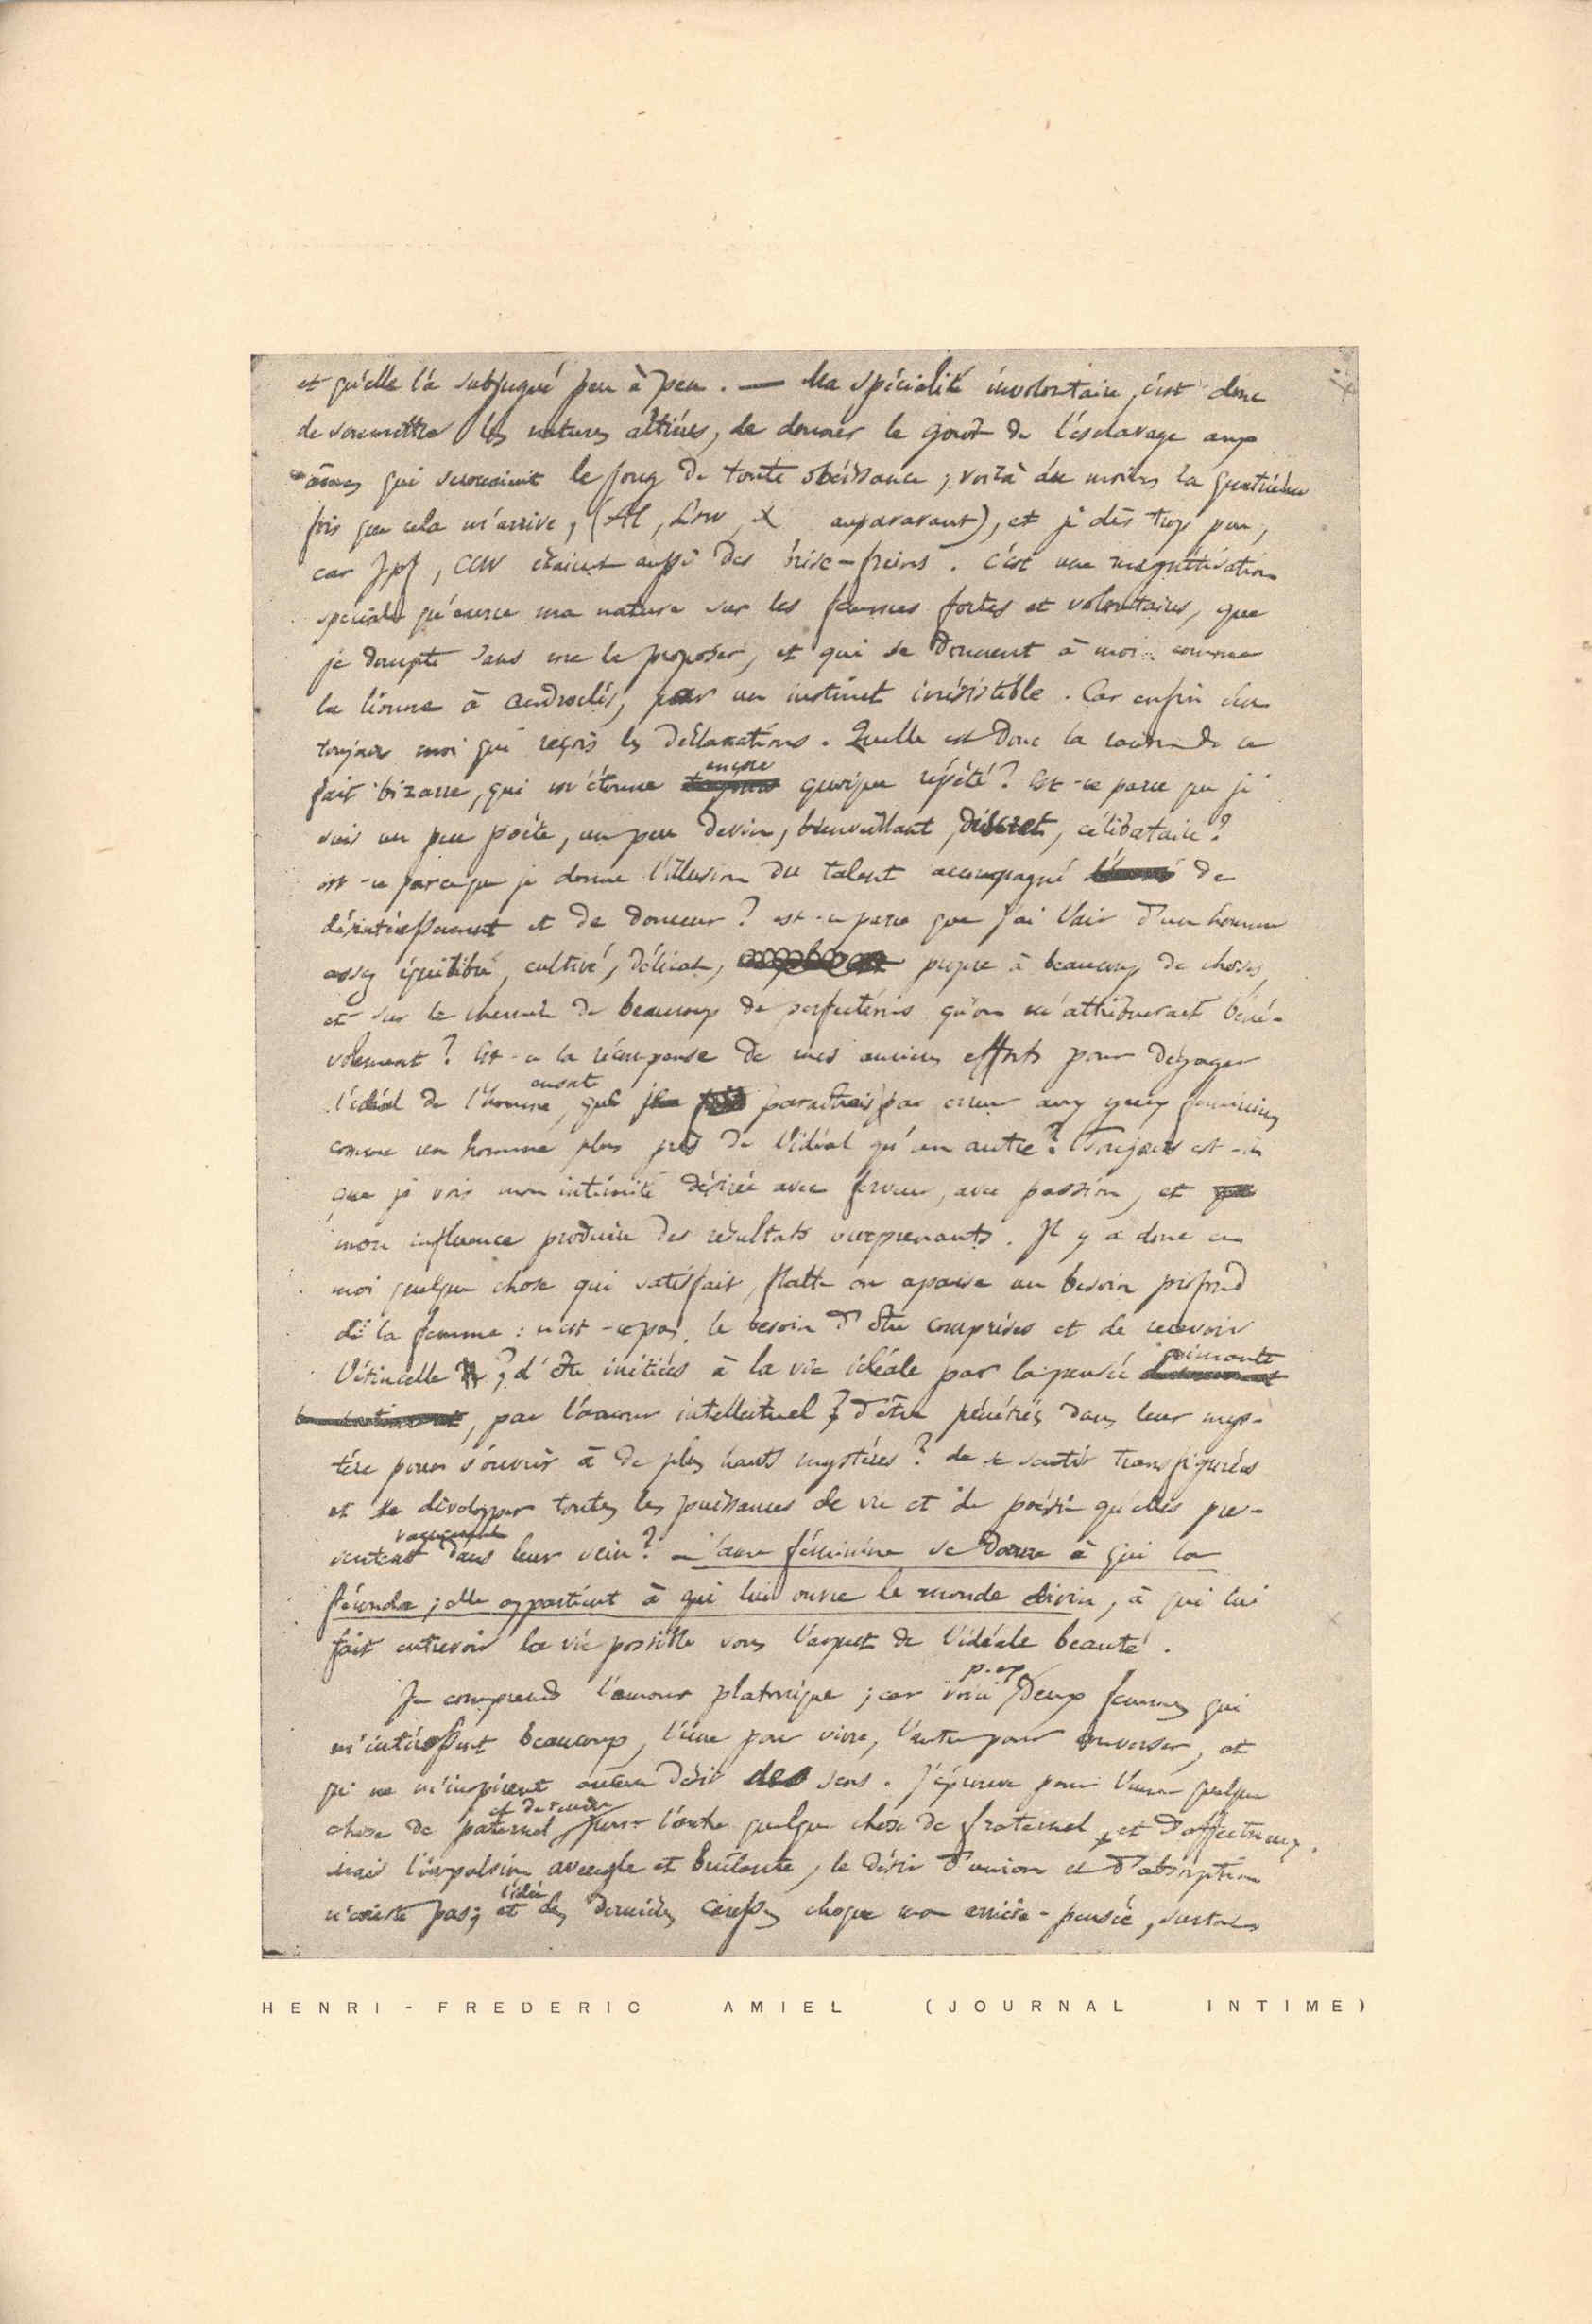 et qu'elle l'a subjugué peu à peu. — Ma spécialité involontaire, c'est donc
de soumettre les natures altières, de donner le goût de l'esclavage aux
âmes qui secouaient le joug de toute obéissance; voilà du moins la quatrième
fois que cela m'arrive, (Al, X auparavant), et je dis trop peu,
car Jpf, étaient aussi des brise-freins. C'est une magnétisation
spéciale qu'exerce ma nature sur les femmes fortes et volontaires, que
je dompte sans me le proposer, et qui se donnent à moi comme
la lionne à Androclès, par un instinct irrésistible. Car enfin c'est
toujours moi qui reçois les déclarations. Quelle est donc la raison de ce
fait bizarre, qui m'étonne encore quoique répété? Est-ce parce que je
suis un peu poète, un peu devin, bienveillant, discret, célibataire?
est-ce parce que je donne l'illusion du talent accompagné de
désintéressement et de douceur? est-ce parce que j'ai l'air d'un homme
assez équilibré, cultivé, délicat, propre à beaucoup de choses,
et sur le chemin de beaucoup de perfections qu'on m'attribuerait béné-
volement? Est-ce la récompense de mes anciens efforts pour dégager
l'idéal de l'homme, que paraîtrais par erreur aux yeux féminins
comme un homme plus près de l'idéal qu'un autre? Toujours est-il
que je vois mon intimité désirée avec ferveur, avec passion, et
mon influence produire des résultats surprenants. Il y a donc en
moi quelque chose qui satisfait, flatte ou apaise un besoin profond
de la femme: n'est-ce pas le besoin d'être comprises et de recevoir
l'étincelle? d'être initiées à la vie idéale par la pensée aimante
, par l'amour intellectuel? d'être pénétrées dans leur mys-
tère pour s'ouvrir à de plus hauts mystères? de se sentir transfigurées
et de développer toutes les puissances de vie et de poésie qu'elles pres-
sentent vaguement dans leur sein? — L'âme féminine se donne à qui la
féconde; elle appartient à qui lui ouvre le monde divin, à qui lui
fait entrevoir la vie possible sous l'aspect de l'idéale beauté.
Je comprends l'amour platonique; car voici p. ex. deux femmes qui
m'intéressent beaucoup, l'une pour vivre, l'autre pour converser, et
qui ne m'inspirent aucun désir des sens. J'éprouve pour l'une quelque
chose de paternel et de tendre, pour l'autre quelque chose de fraternel et d'affectueux.
mais l'impulsion aveugle et brûlante, le désir d'union et d'absorption
n'existe pas; et l'idée des dernières caresses choque mon arrière-pensée, surtout
HENRI-FREDERIC AMIEL (JOURNAL INTIME)